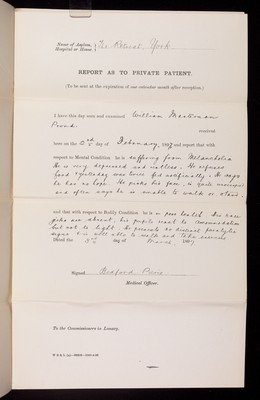 Name of Asylum, Hospital or House. } The Retreat, York
REPORT AS TO PRIVATE PATIENT.
(To be sent at the expiration of one calendar month after reception.)
I have this day seen and examined William Masterman
Proud received
here on the 3rd day of February, 1897 and report that with
respect to Mental Condition he is suffering from Melancholia
He is very depressed and restless. He refuses
food & yesterday was twice fed artificially. He says
he has no hope. He picks his face, is quite
and often says he is unable to walk or stand.
and that with respect to Bodily Condition he is in poor health. His knee
jerks are absent, his pupils react to accommodation
but not to light. He presents no physical paralytic
signs & is well able to walk and take exercise
Dated the 3rd day of March, 1897
Signed Bedford Pierce
Medical Officer.
To the Commissioners in Lunacy.